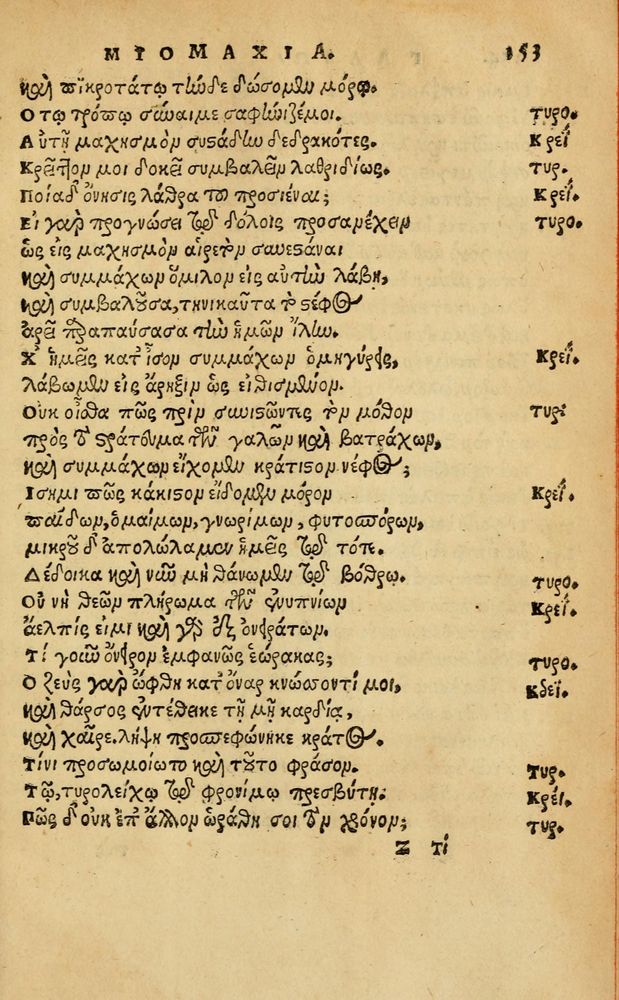 ΜΙΟΜΑΧΙΑ. 153
καὶ πικροτάτῳ τήνδε δώσομεν μόρῳ.
Ο τῳ τρόπῳ σύναιμε σαφηνιζέμοι. τυρο.
Αὐτῇ μαχησμὸν συστάδην δεδρακότες. Κρεΐ
Κρεῖττον μοι δοκεῖ συμβαλεῖν λαθριδίως. τυρ.
Ποία δ' ὄνησις λάθρα τοῦ προσιέναι; Κρεΐ.
Εἰ γὰρ προγνώσει τοῖς δόλοις προσανέχειν τυρο.
ὡς εἰς μαχησμὸν αἱρετὸν συνεστάναι
καὶ συμμάχων ὅμιλον εἰς αὐτὴν λάβῃ,
καὶ συμβαλοῦσα, τηνικαῦτα τὸ στέφος
ἀρεῖ παραπαύσασα τὴν ἡμῶν ἴλην.
Χ' ἡμεῖς κατ' ἶσον συμμάχων ὁμηγύρεις, Κρεΐ.
λάβωμεν εἰς ἄρηξιν ὡς εἰθισμένον.
Οὐκ οἶσθα πῶς πρὶν συνιστῶντες τὸν μόθον τυρ:
πρὸς τὸ στράτευμα τῶν γαλῶν καὶ βατράχων,
καὶ συμμάχων εἴχομεν κράτιστον νέφος;
Ισημι πῶς κάκιστον εἴδομεν μόρον Κρεΐ.
παίδων, ὁμαίμων, γνωρίμων, φυτοσπόρων,
μικροῦ δ' ἀπολώλαμεν ἡμεῖς τοῖς τότε.
Δέδοικα καὶ νῦν μὴ θάνωμεν τοῖς βόθρῳ. τυρο.
Οὐ νὴ θεῶν πλήρωμα τῶν ἐνυπνίων Κρεΐ.
ἄελπίς εἰμι καὶ γὰρ ἐξ ὀνειράτων.
Τί γοῦν ὄνειρον ἐμφανῶς ἑώρακας; τυρο.
Ο ζεὺς γὰρ ὤφθη κατ' ὄναρ κνώσσοντί μοι, Κδεΐ.
καὶ θάρσος ἐντέθεικε τῇ μῇ καρδίᾳ,
καὶ χαῖρε. λήψῃ προσπεφώνηκε κράτος.
Τίνι προσωμοίωτο καὶ τοῦτο φράσον. Τυρ.
Τῷ, τυρολείχῳ τοῖς φρονίμῳ πρεσβύτῃ: Κρεΐ.
Πῶς δ' οὐκ ἐπ' ἄλλον ὡράθη σοι τὸν χρόνον; τυρ.
Ζ τί